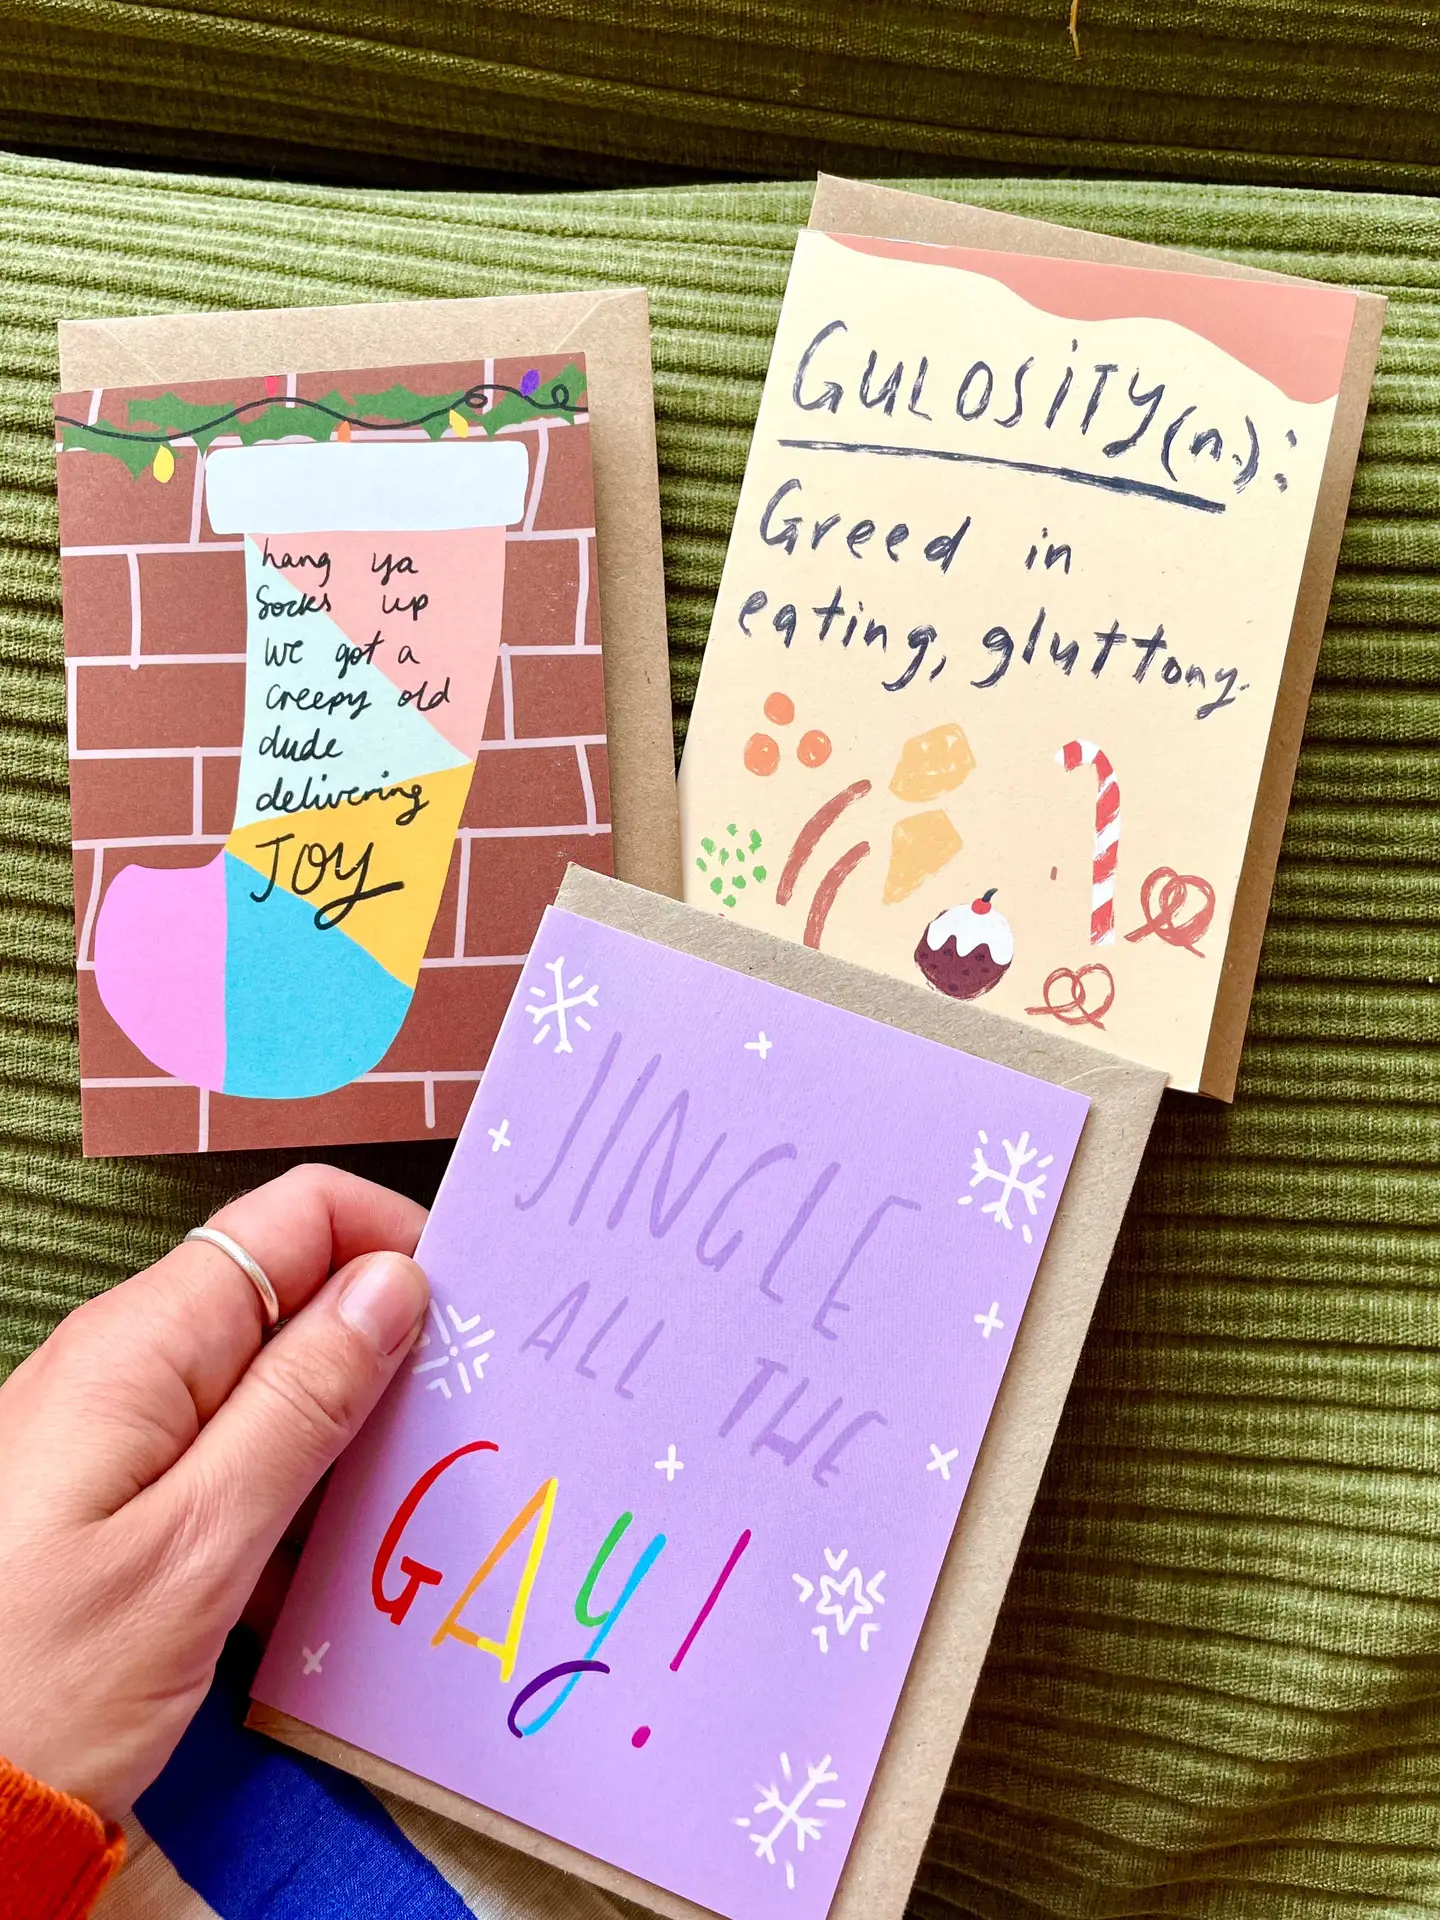 hang ya
Socks up
we got a
creepy old
dude
delivering
JOY
GULOSITY (n.):
Greed in
eating, gluttony.
JINGLE
ALL THE
GAY!